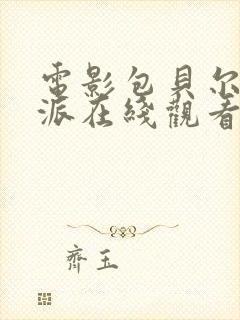 電影包貝尔
派在綫觀看
齊玉